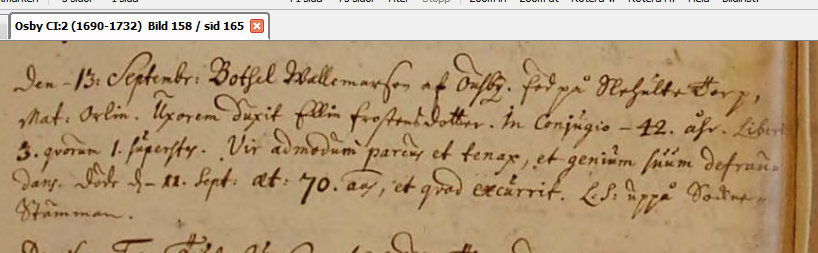 Osby CI:2 (1690-1732) Bild 158 / sid 165
Den - 13: Septembr: Bothel Wallemarson af Ousby. född på Slehülte Torp,
Mat: Orlin. Uxorem duxit Ellin Frostensdotter. In Conjugio - 42. åhr. Liberi
3. qvorum 1. superstes. Vir admodum parcus et tenax, et genium suum defrau-
dans. Döde d - 11. Sept: æt: 70. añs, et qvod excurrit. L. S: uppå Södre -
Stämman.